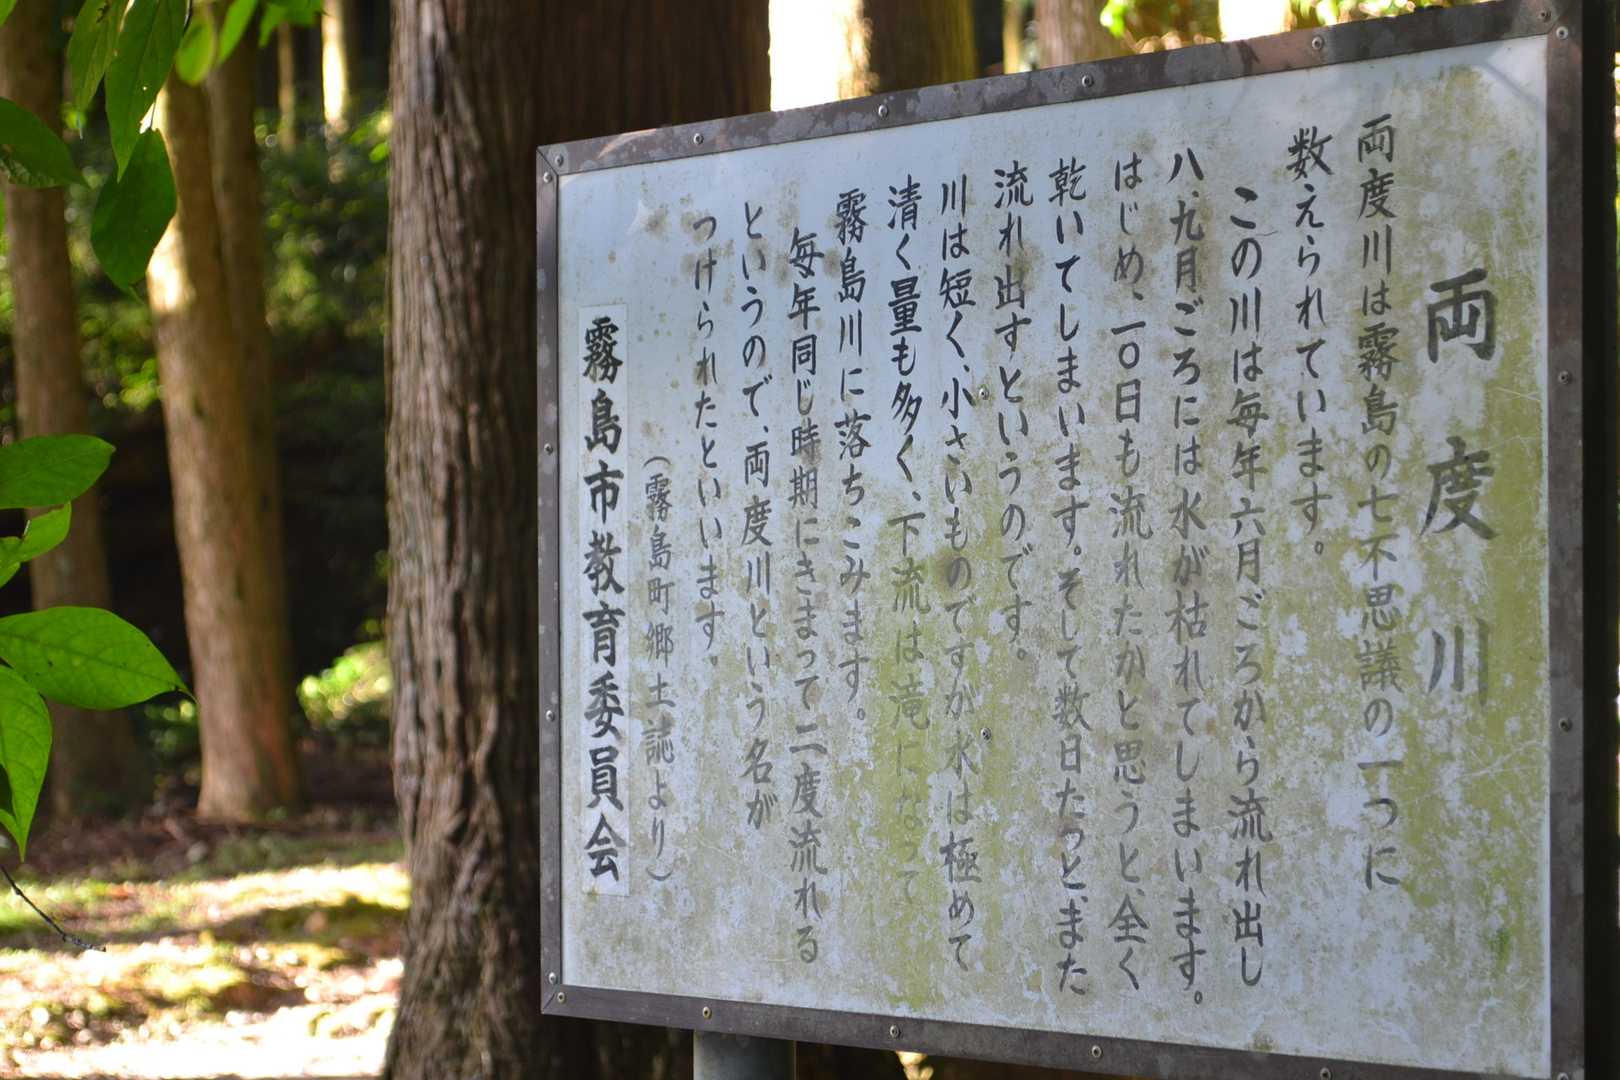 両度川
両度川は霧島の七不思議の一つに
数えられています。
この川は毎年六月ごろから流れ出し
八、九月ごろには水が枯れてしまいます。
はじめ、一〇日も流れたかと思うと、全く
乾いてしまいます。そして数日たっと、また
流れ出すというのです。
川は短く、小さいものですが、水は極めて
清く量も多く、下流は滝になって
霧島川に落ちこみます。
毎年同じ時期にきまって二度流れる
というので、両度川という名が
つけられたといいます。
(霧島町郷土誌より)
霧島市教育委員会